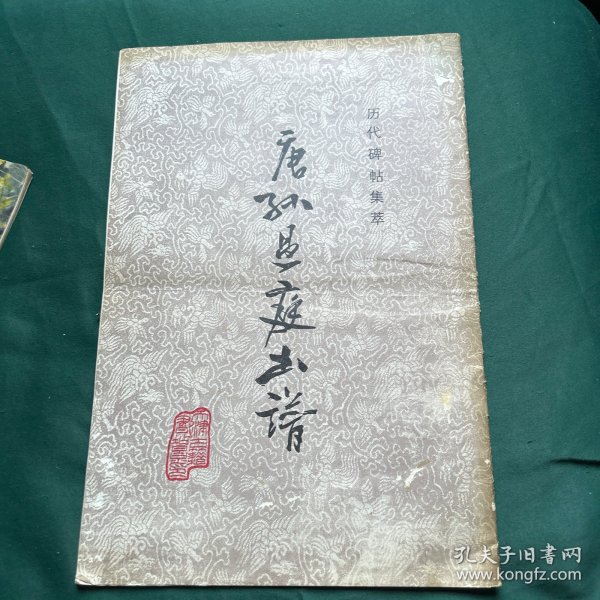 历代碑帖集萃
唐孙过庭书谱
孔夫子旧書网
www.kongfz.com